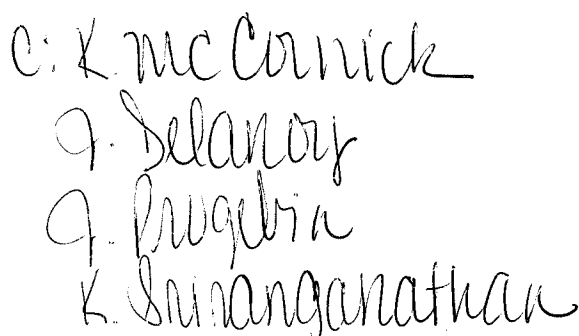 C: K. McCornick
J. Delanoy
J. Prugelvin
K. Sriranganathan